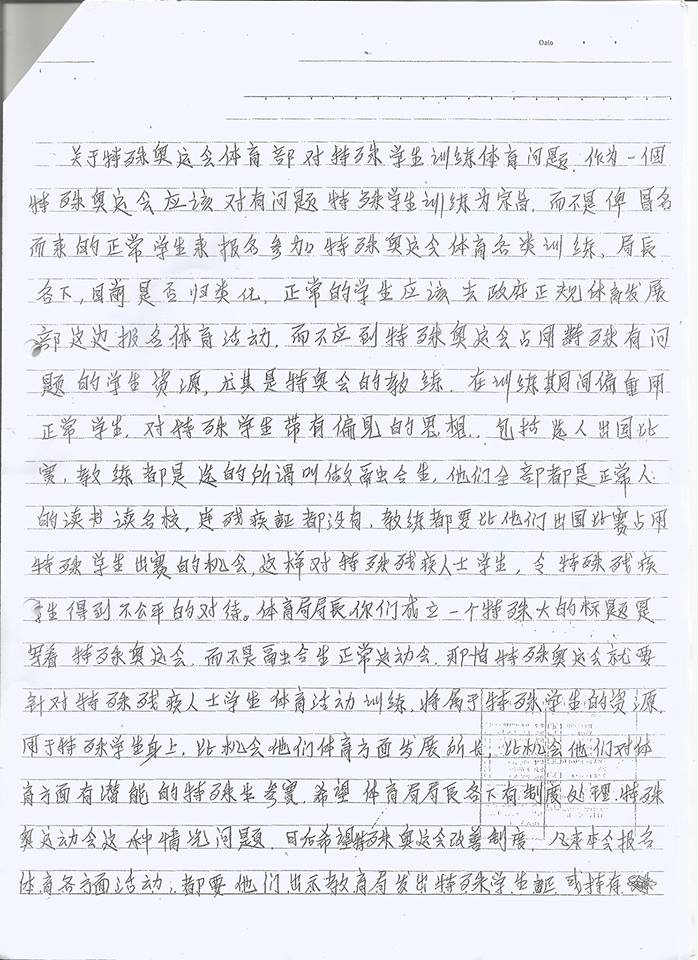 Date
关于特殊奥运会体育部对特殊学生训练体育问题．作为一個
特殊奥运会应该对有问题特殊学生训练为宗旨．而不是俾冒名
而来的正常学生来报名参加特殊奥运会体育各类训练．局長
各下，目前是否归类化．正常的学生应该去政府正规体育发展
部这边报名体育活动．而不应到特殊奥运会占用特殊有问
题的学生资源，尤其是特奥会的教练．在训练其期间偏重用
正常学生．对特殊学生带有偏见的思想．包括选人出国比
賽，教练都是选的所谓叫做融合生，他们全部都是正常人
的读书读名校，连残疾証都没有，教练都要比他们出国比赛占用
特殊学生出赛的机会，这样对特殊残疾人士学生，令特殊残疾
学生得到不公平的对待。体育局局長你们成立一个特殊大的标题是
写着特殊奥运会．而不是融合生正常运动会．那怕特殊奥运会就要
针对特殊残疾人士学生体育活动训练．将属于特殊学生的资源．
用于特殊学生身上．比机会他们体育方面发展所長．比机会他们对体
育方面有潜能的特殊生考賽．希望体育局局長各下有制度处理．特殊
奥运动会这种情况问题．日后希望特殊奥运会改善制度．凡来本会报名
体育各方面活动．都要他们出示教育局发出特殊学生証或持有